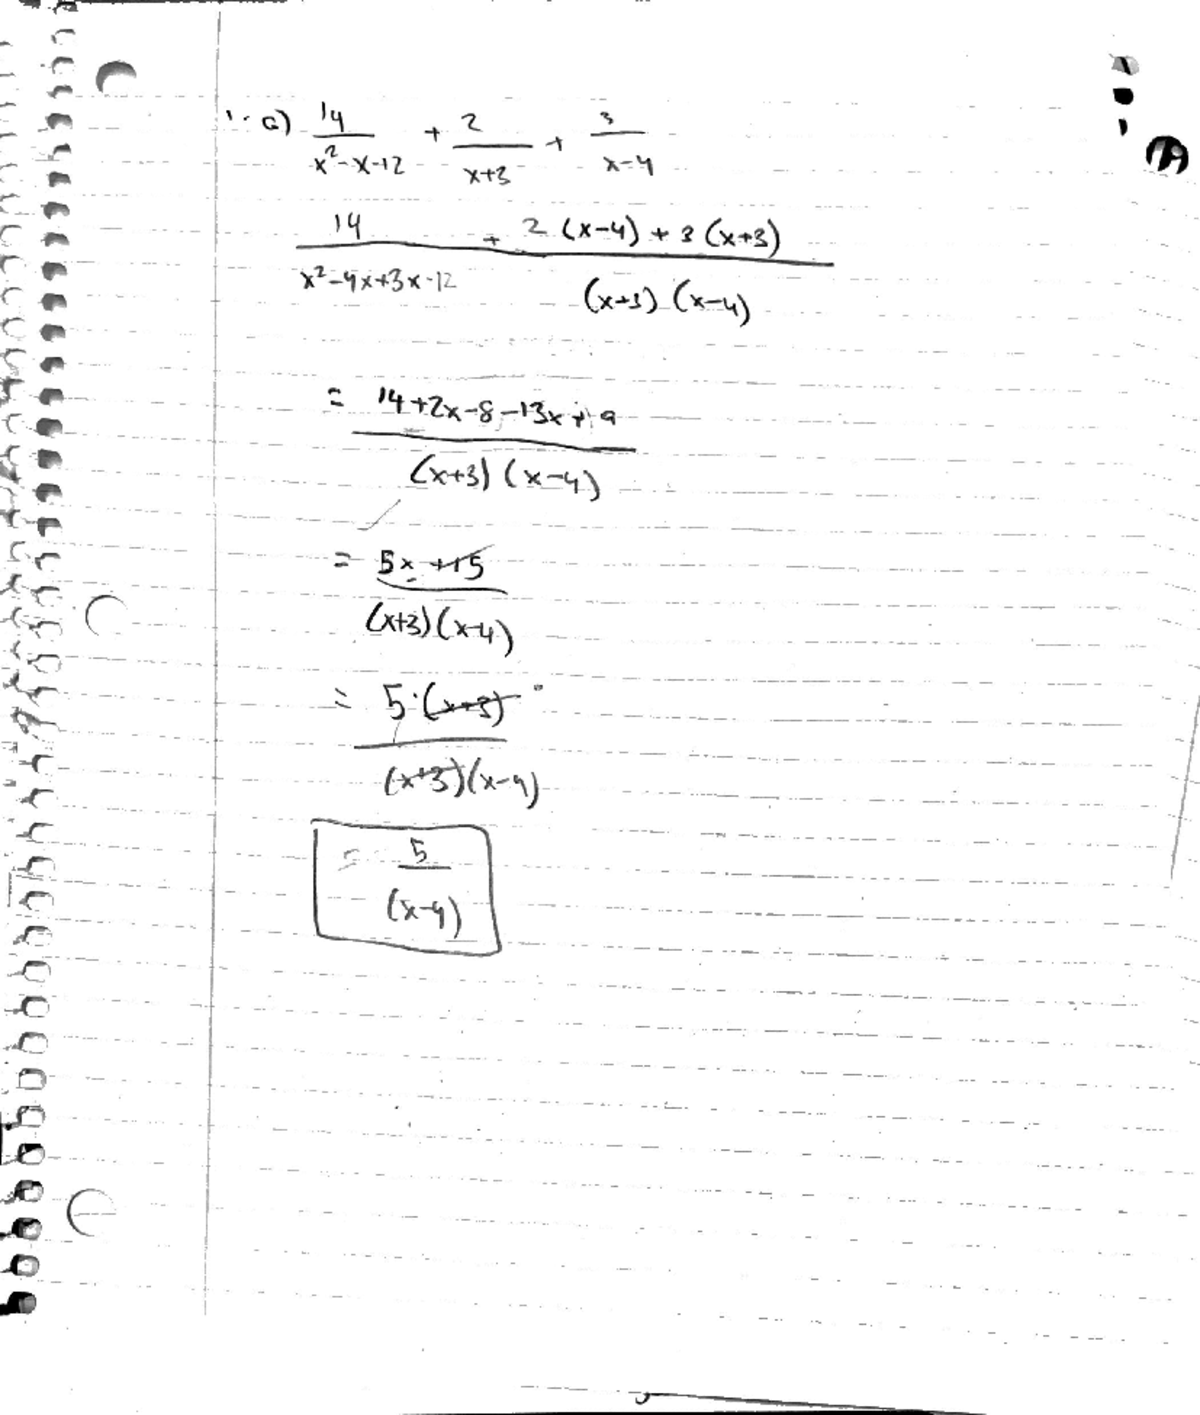 1. a) 14/(x²-x-12) + 2/(x+3) + 3/(x-4)
14/(x²-4x+3x-12) + (2(x-4) + 3(x+3))/((x+3)(x-4))
= (14+2x-8-13x+9)/((x+3)(x-4))
= (5x+15)/((x+3)(x-4))
= 5·(x+3)/((x+3)(x-4))
= 5/(x-4)